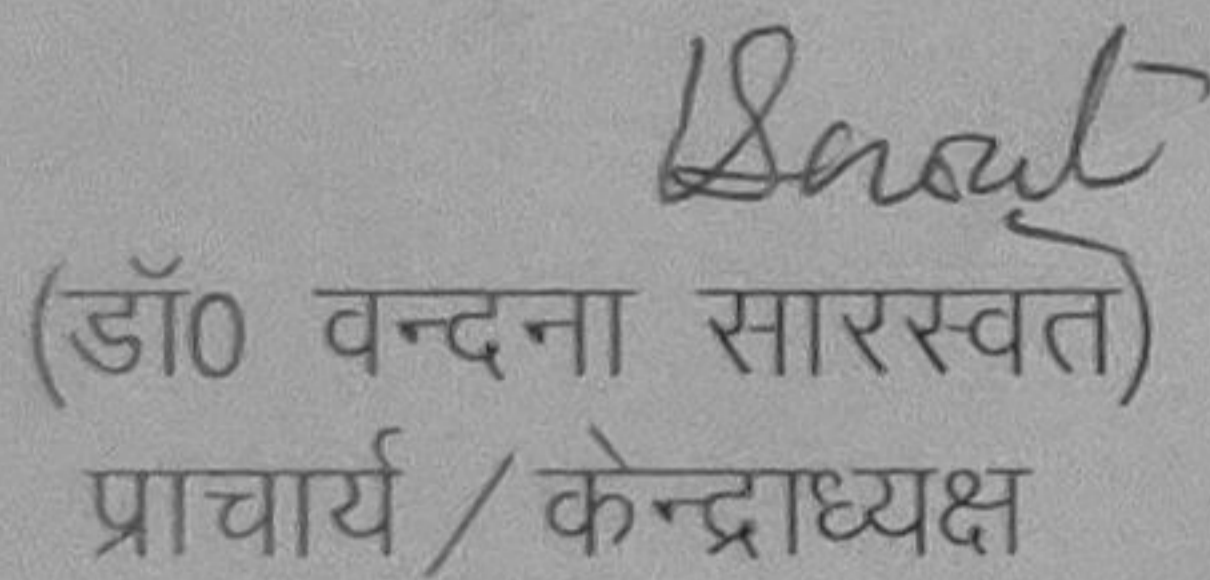 (डॉ0 वन्दना सारस्वत)
प्राचार्य / केन्द्राध्यक्ष